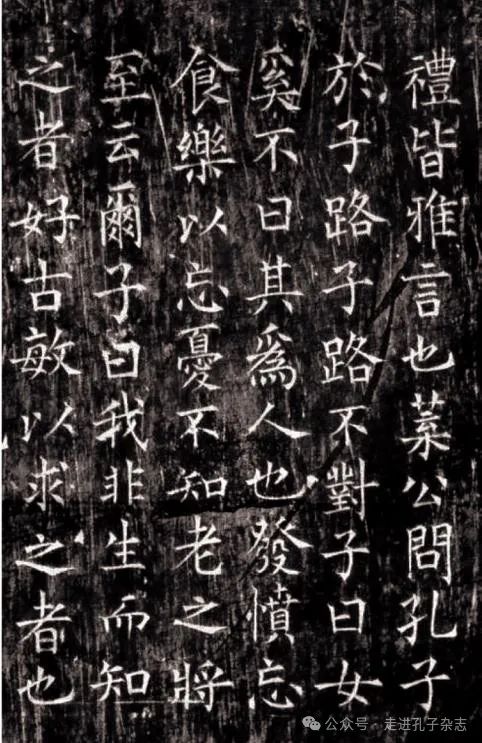 禮皆雅言也葉公問孔子
於子路子路不對子曰女
奚不曰其爲人也發憤忘
食樂以忘憂不知老之將
至云爾子曰我非生而知
之者好古敏以求之者也
公众号 · 走进孔子杂志